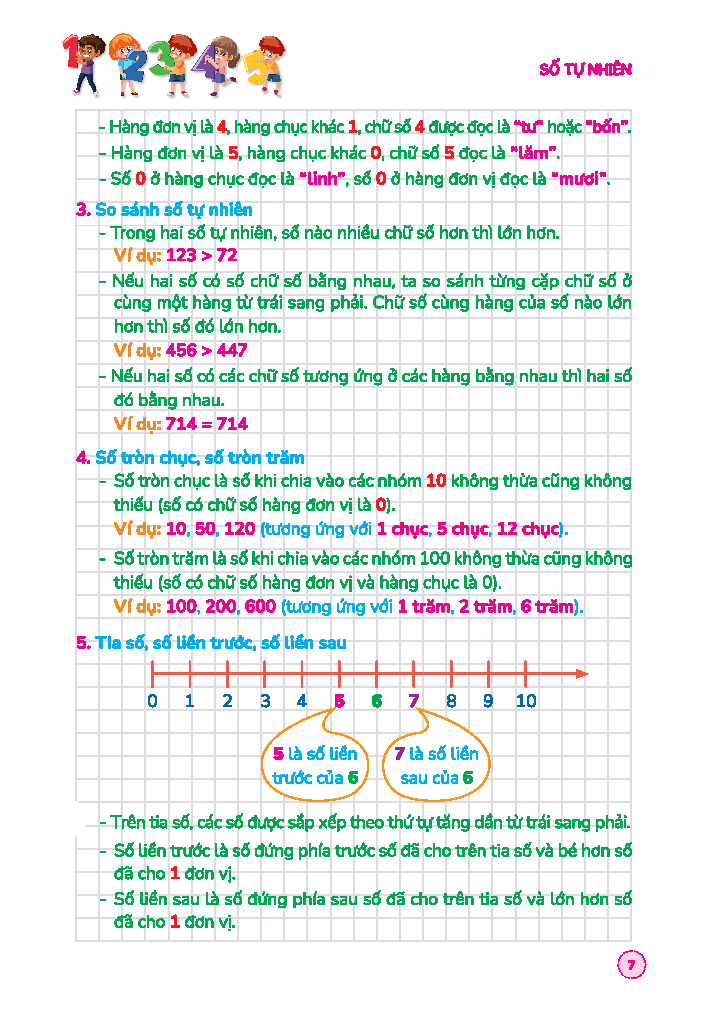 1 2 3 4 5
SỐ TỰ NHIÊN
- Hàng đơn vị là 4, hàng chục khác 1, chữ số 4 được đọc là “tư” hoặc “bốn”.
- Hàng đơn vị là 5, hàng chục khác 0, chữ số 5 đọc là “lăm”.
- Số 0 ở hàng chục đọc là “linh”, số 0 ở hàng đơn vị đọc là “mươi”.
3. So sánh số tự nhiên
- Trong hai số tự nhiên, số nào nhiều chữ số hơn thì lớn hơn.
Ví dụ: 123 > 72
- Nếu hai số có số chữ số bằng nhau, ta so sánh từng cặp chữ số ở
cùng một hàng từ trái sang phải. Chữ số cùng hàng của số nào lớn
hơn thì số đó lớn hơn.
Ví dụ: 456 > 447
- Nếu hai số có các chữ số tương ứng ở các hàng bằng nhau thì hai số
đó bằng nhau.
Ví dụ: 714 = 714
4. Số tròn chục, số tròn trăm
- Số tròn chục là số khi chia vào các nhóm 10 không thừa cũng không
thiếu (số có chữ số hàng đơn vị là 0).
Ví dụ: 10, 50, 120 (tương ứng với 1 chục, 5 chục, 12 chục).
- Số tròn trăm là số khi chia vào các nhóm 100 không thừa cũng không
thiếu (số có chữ số hàng đơn vị và hàng chục là 0).
Ví dụ: 100, 200, 600 (tương ứng với 1 trăm, 2 trăm, 6 trăm).
5. Tia số, số liền trước, số liền sau
0 1 2 3 4 5 6 7 8 9 10
5 là số liền
trước của 6
7 là số liền
sau của 6
- Trên tia số, các số được sắp xếp theo thứ tự tăng dần từ trái sang phải.
- Số liền trước là số đứng phía trước số đã cho trên tia số và bé hơn số
đã cho 1 đơn vị.
- Số liền sau là số đứng phía sau số đã cho trên tia số và lớn hơn số
đã cho 1 đơn vị.
7